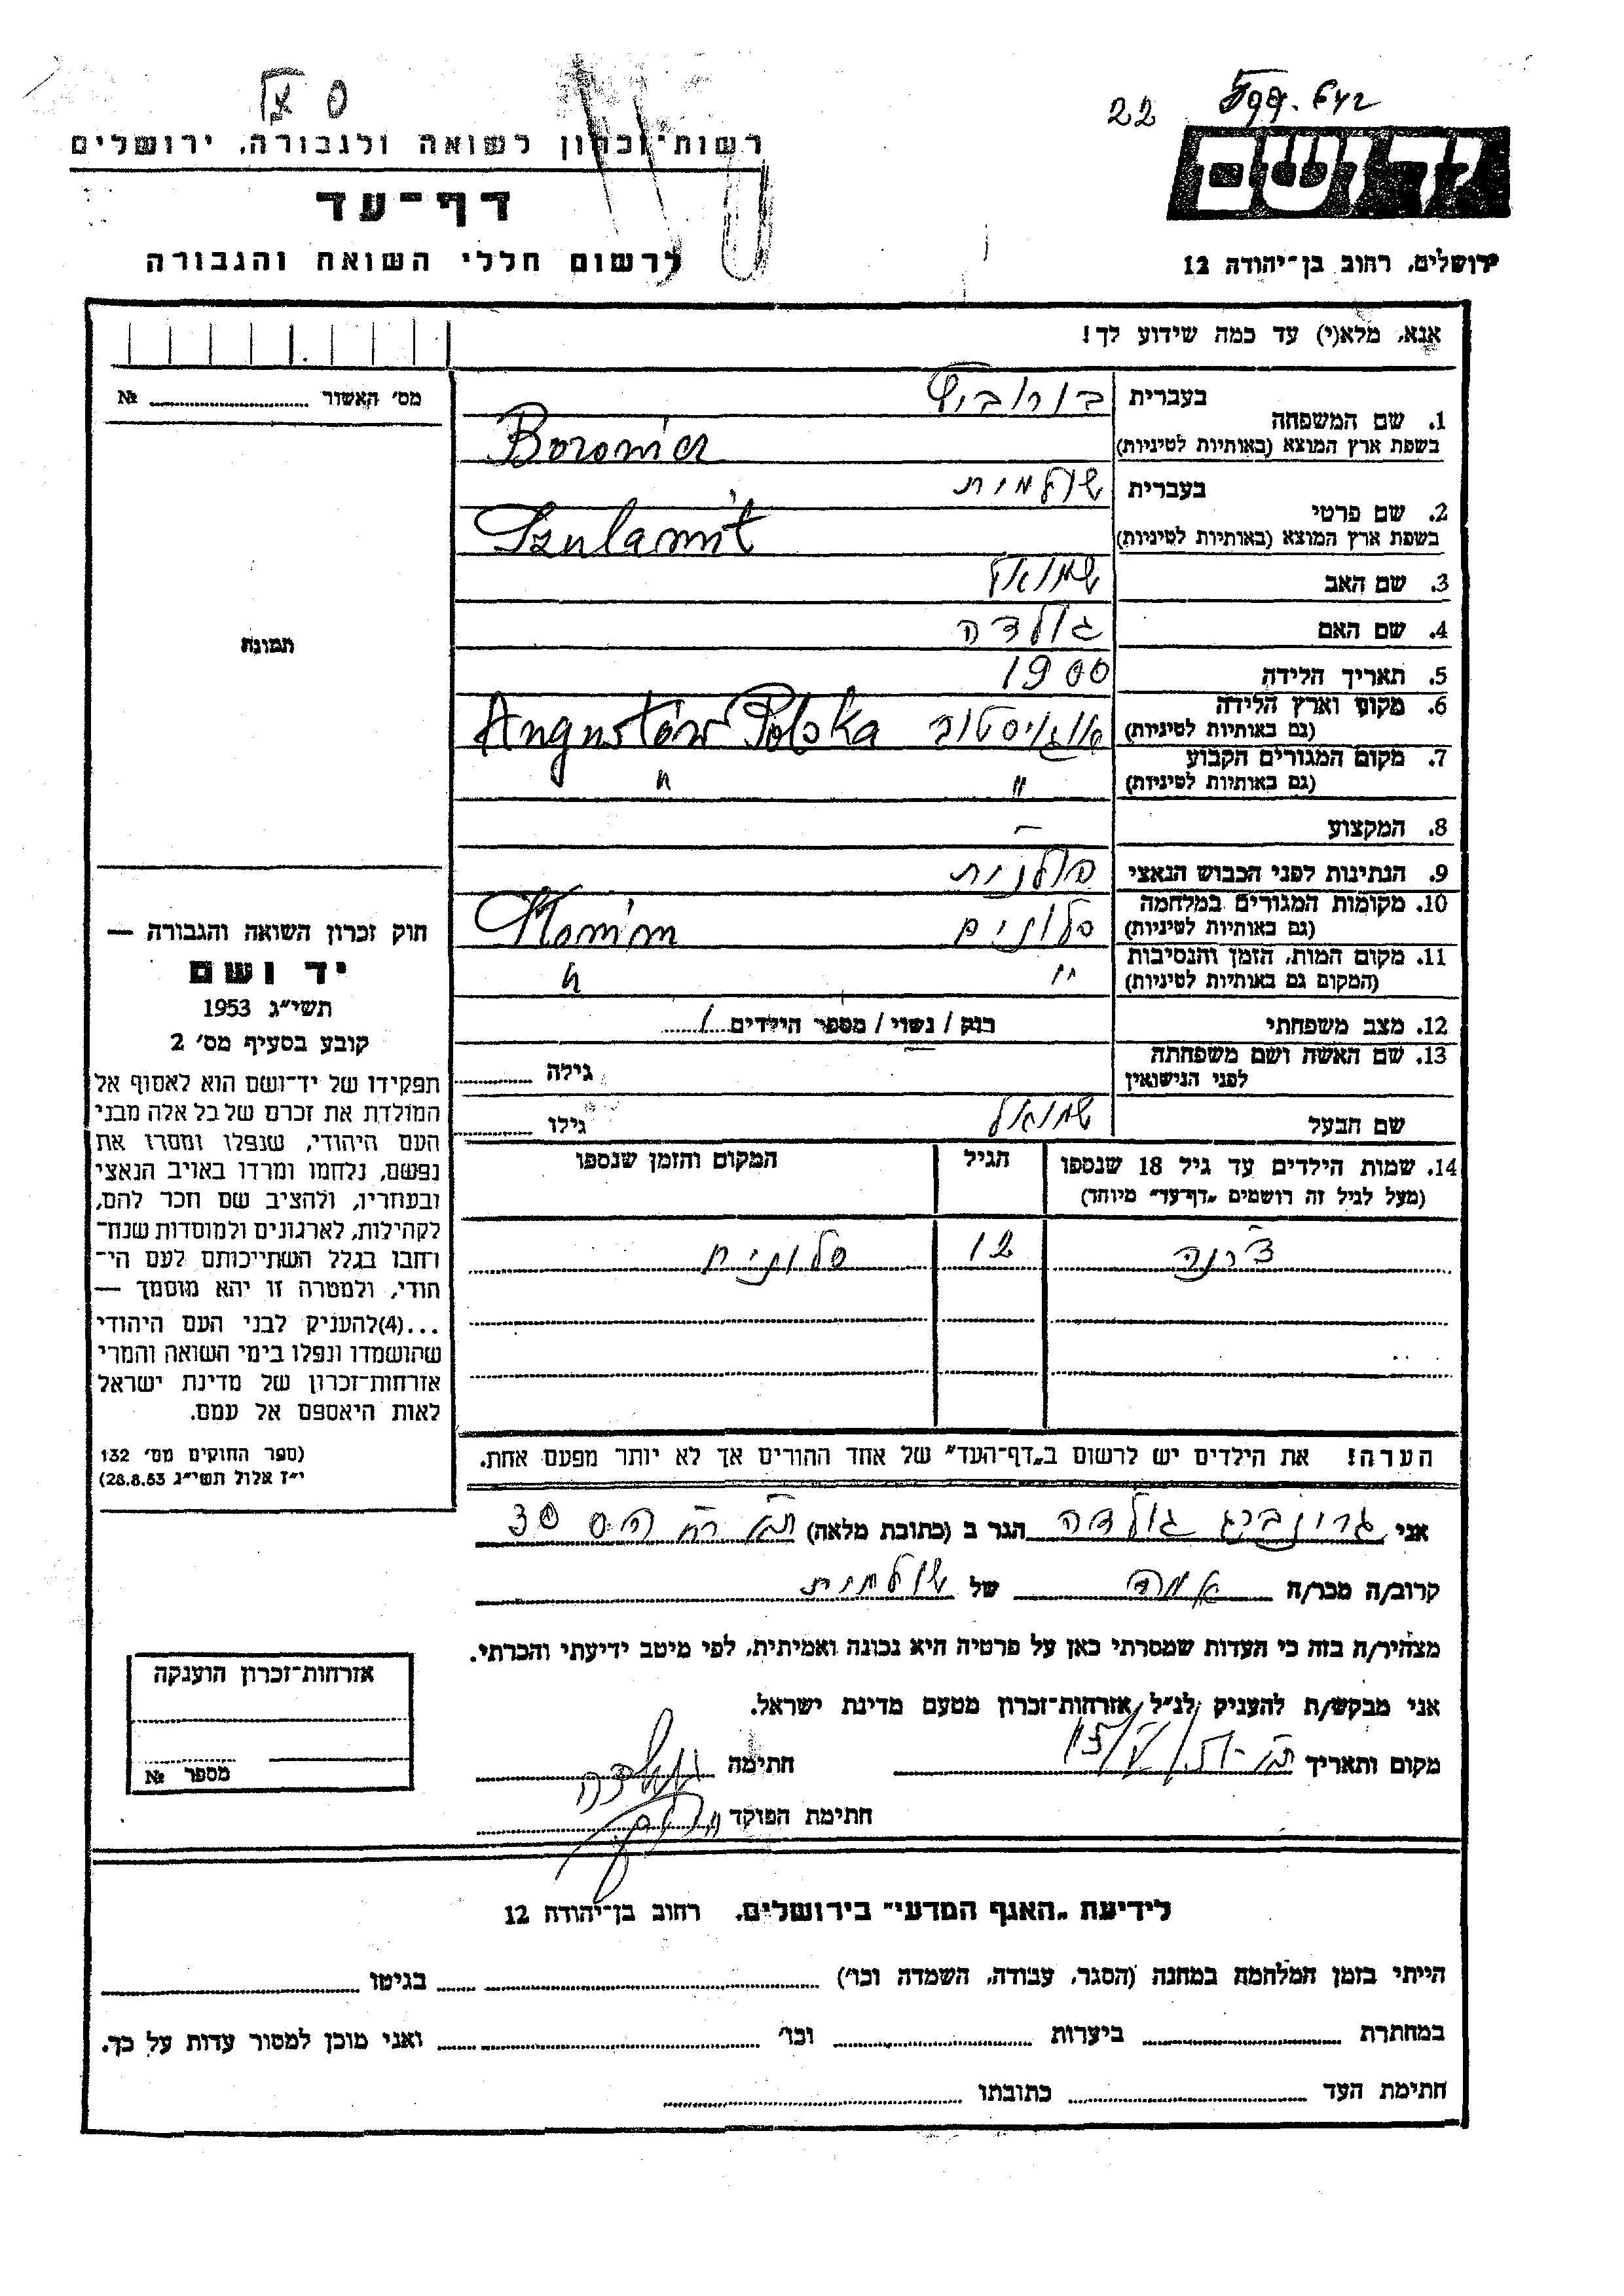 22
רשות־זכרון לשואה ולגבורה, ירושלים
דף־עד
לרשום חללי השואה והגבורה
יד ושם
ירושלים, רחוב בן־יהודה 12
אנא, מלא(י) עד כמה שידוע לך!
מס׳ האשור № 
תמונה
1. שם המשפחה
בעברית בורוביץ
בשפת ארץ המוצא (באותיות לטיניות) Borovicz
2. שם פרטי
בעברית שולמית
בשפת ארץ המוצא (באותיות לטיניות) Szulamit
3. שם האב שמואל
4. שם האם גולדה
5. תאריך הלידה 1900
6. מקום וארץ הלידה
(גם באותיות לטיניות) אוגוסטוב Augustów Polska
7. מקום המגורים הקבוע
(גם באותיות לטיניות) " "
8. המקצוע –
9. הנתינות לפני הכבוש הנאצי פולנית
10. מקומות המגורים במלחמה
(גם באותיות לטיניות) סלונים Słonim
11. מקום המות, הזמן והנסיבות
(המקום גם באותיות לטיניות) " "
12. מצב משפחתי רוק / נשוי / מספר הילדים 1
13. שם האשה ושם משפחתה
לפני הנישואין גילה
שם הבעל שמואל גילו
14. שמות הילדים עד גיל 18 שנספו
(מעל לגיל זה רושמים „דף־עד" מיוחד)
הגיל
המקום והזמן שנספו
12 סלונים
הערה! את הילדים יש לרשום ב„דף־העד" של אחד ההורים אך לא יותר מפעם אחת.
חוק זכרון השואה והגבורה —
יד ושם
תשי״ג 1953
קובע בסעיף מס׳ 2
תפקידו של יד־ושם הוא לאסוף אל
המולדת את זכרם של כל אלה מבני
העם היהודי, שנפלו ומסרו את
נפשם, נלחמו ומרדו באויב הנאצי
ובעוזריו, ולהציב שם וזכר להם,
לקהילות, לארגונים ולמוסדות שנח־
רחבו בגלל השתייכותם לעם הי־
הודי, ולמטרה זו יהא מוסמך —
...(4)להעניק לבני העם היהודי
שהושמדו ונפלו בימי השואה והמרי
אזרחות־זכרון של מדינת ישראל
לאות היאספם אל עמם.
(ספר החוקים מס׳ 132
י״ז אלול תשי״ג 28.8.53)
אני גרונברג גולדה הגר ב (כתובת מלאה) 30
קרוב/ה מכר/ה אמה של שולמית
מצהיר/ה בזה כי העדות שמסרתי כאן על פרטיה היא נכונה ואמיתית, לפי מיטב ידיעתי והכרתי.
אני מבקש/ת להעניק לנ״ל אזרחות־זכרון מטעם מדינת ישראל.
מקום ותאריך חתימה גולדה
חתימת הפוקד
אזרחות־זכרון הוענקה
מספר №
לידיעת „האגף המדעי" בירושלים, רחוב בן־יהודה 12
הייתי בזמן המלחמה במחנה (הסגר, עבודה, השמדה וכו׳) בגיטו
במחתרת ביערות וכו׳ ואני מוכן למסור עדות על כך.
חתימת העד כתובתו